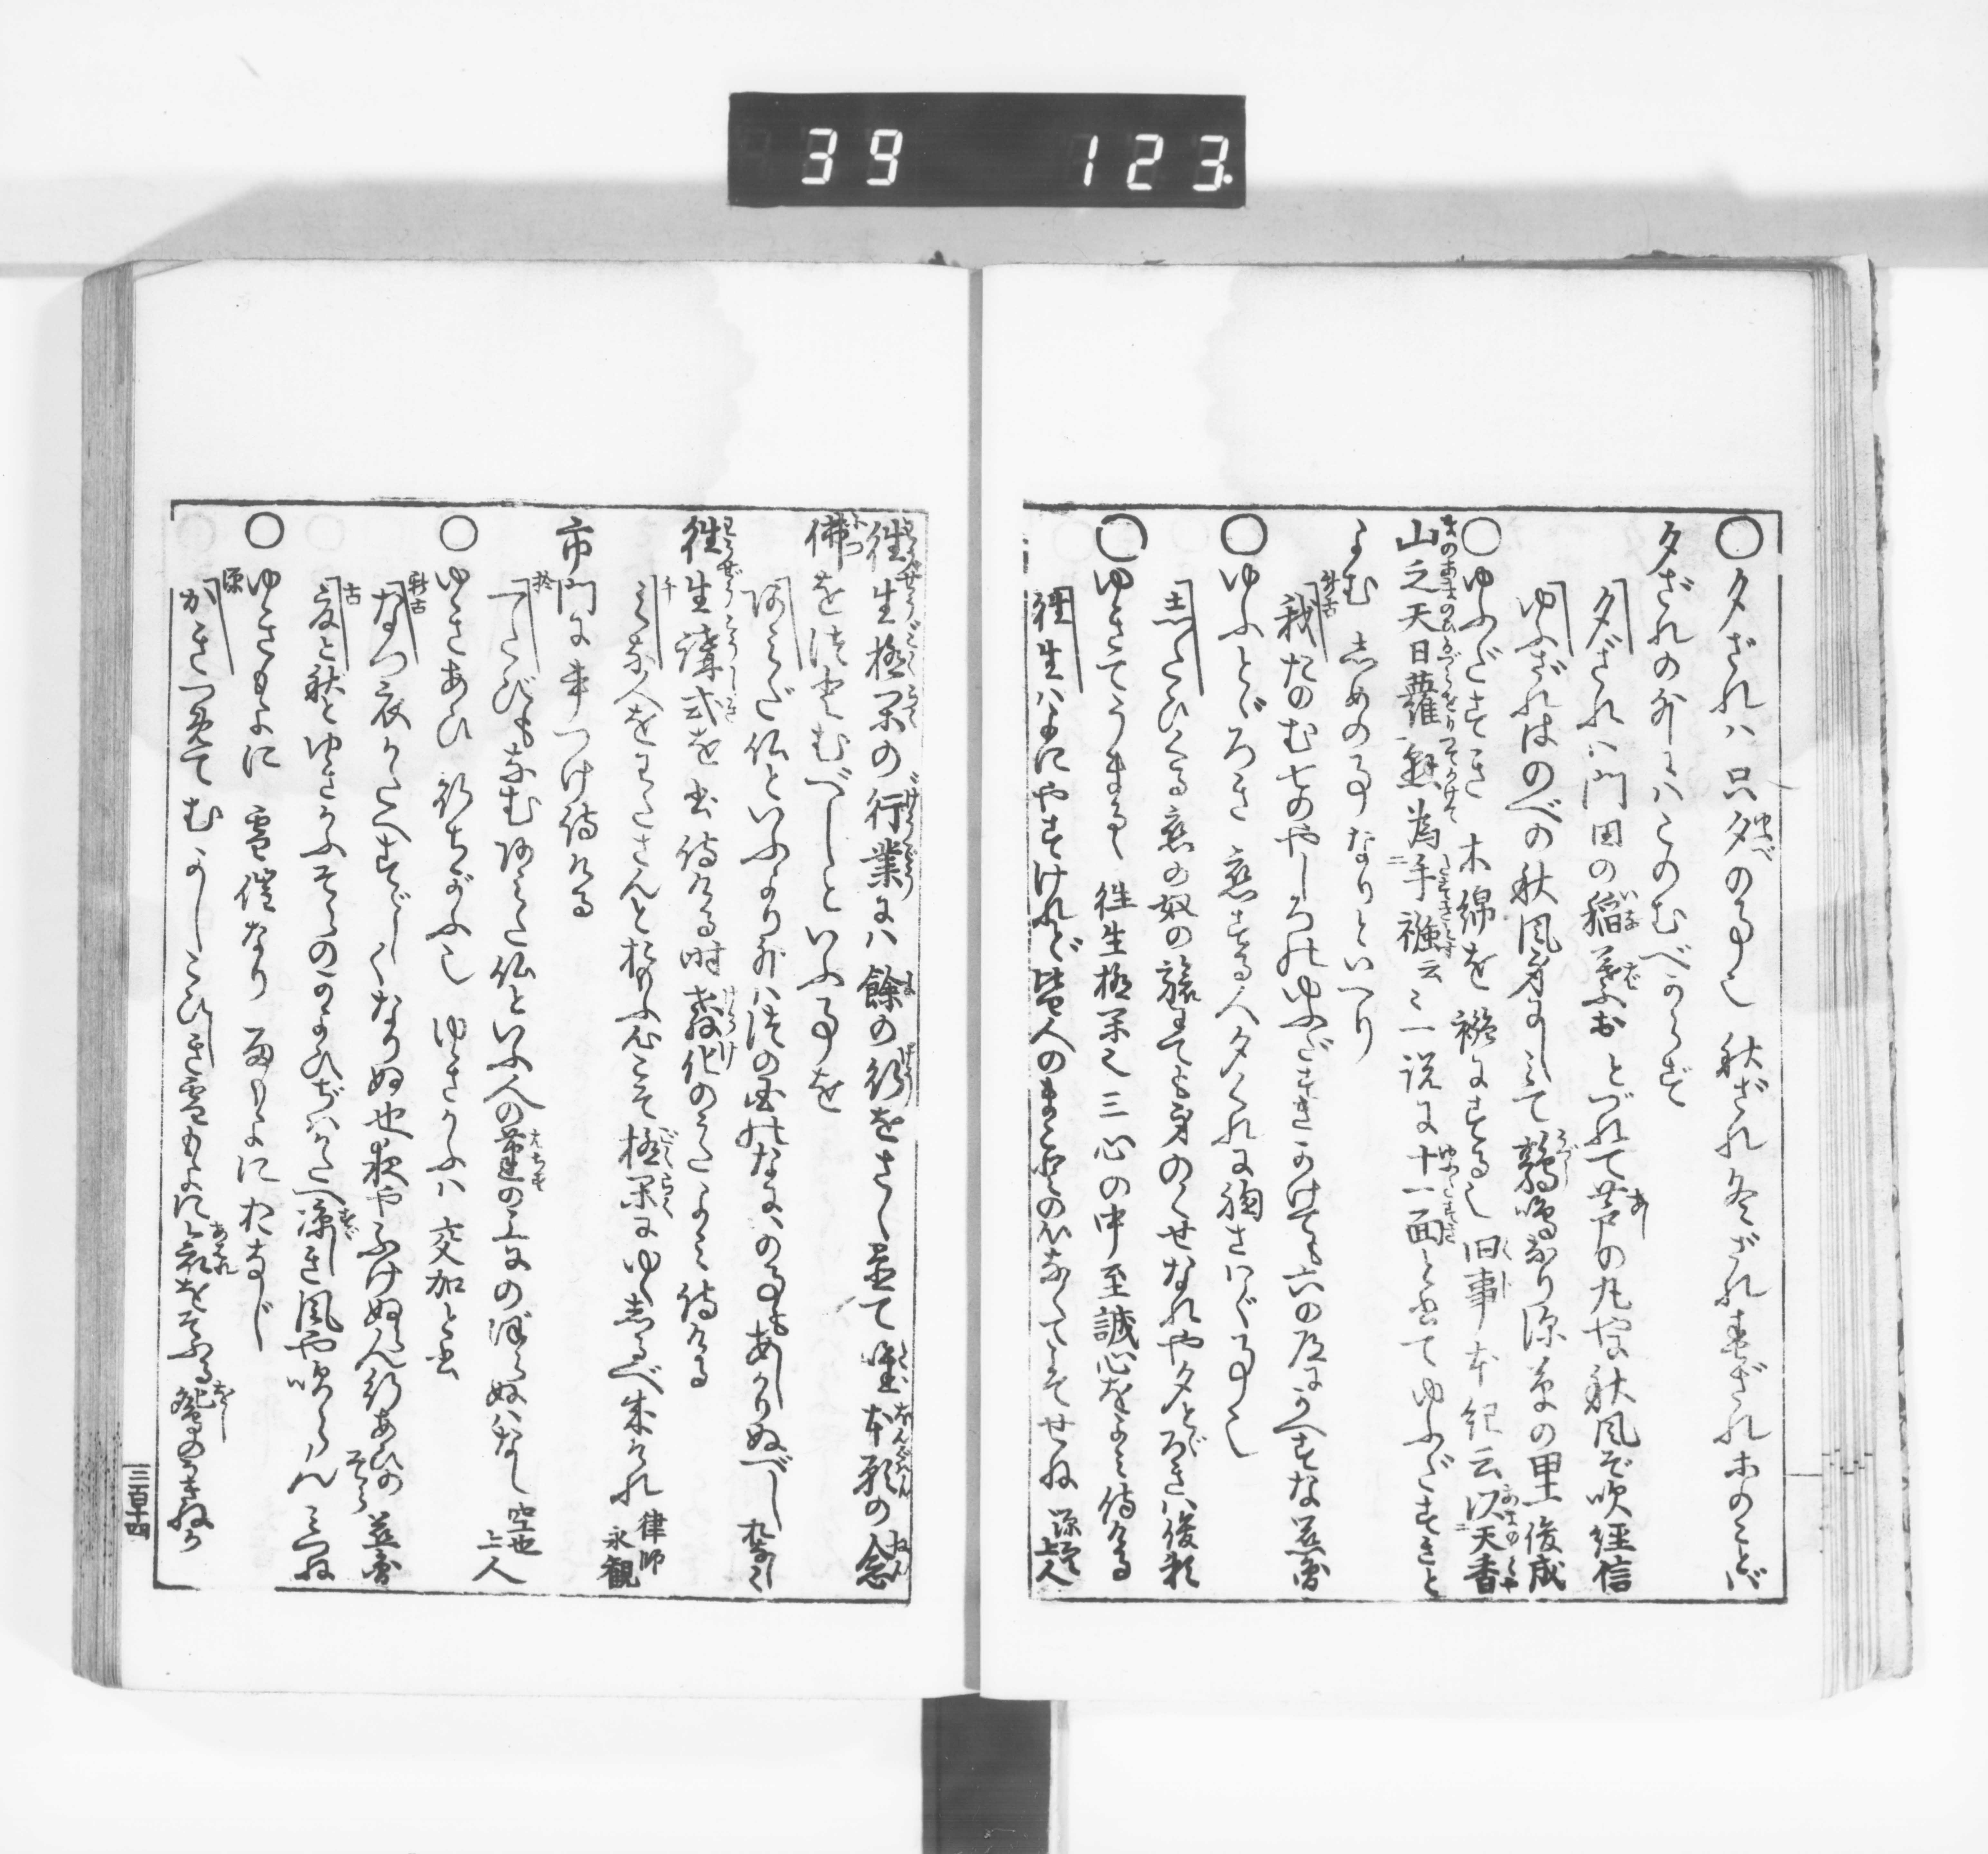 39 123.
○夕ざれハ 只夕のみ也 秋ざれ冬ざれ春ざれホのことバ
夕ざれの外ハこのむべからず
夕ざれハ門田の稲葉おとづれて芦の丸やに秋風ぞ吹 経信
ゆふざれはのべの秋風身にしミて鶉鳴なり深草の里 俊成
○ゆふだすき 木綿を襁にする也 旧事本紀云以天香
山之天日蘿懸為手襁云々一説に十一面と書てゆふだすきと
よむ しめの事なりといへり
我たのむ七のやしろのゆふだすきかけても六の道にかへすな 慈圓
○ゆふとゞろき 恋する人夕ぐれに胸さハぐ事也
したひくる恋の奴の旅にても身のくせなれや夕とゞろきハ 俊頼
○ゆきてうまるゝ 往生極楽也 三心の中至誠心をよミ侍ける
往生ハよにやすけれど皆人のまことの心なくてこそせね 源空上人
往生極楽の行業にハ餘の行をさし置て唯本願の念
佛をつとむべしといふ事を
阿ミだ仏といふより外ハ津の国のなにハの事もあしかりぬべし 同
往生講式を書侍ける時教化のうたよミ侍ける
ミな人をわたさんと思ふ心こそ極楽にゆくしるべ成けれ 律師永観
市門にかきつけ侍ける
一たびも南無阿ミだ仏といふ人の蓮の上にのぼらぬハなし 空也上人
○ゆきあひ 行ちがふ也 ゆきかふハ交加と書
なつ衣かたへすゞしくなりぬ也夜やふけぬらん行あひの空 慈圓
夏と秋とゆきかふそらのかよひぢハかたへ涼しき風や吹らん ミつね
○ゆきもよに 雪催なり 雨もよにおなじ
かきつめてむかしこひしき雪もよに哀をそふる鴛のうきねか
三百十四